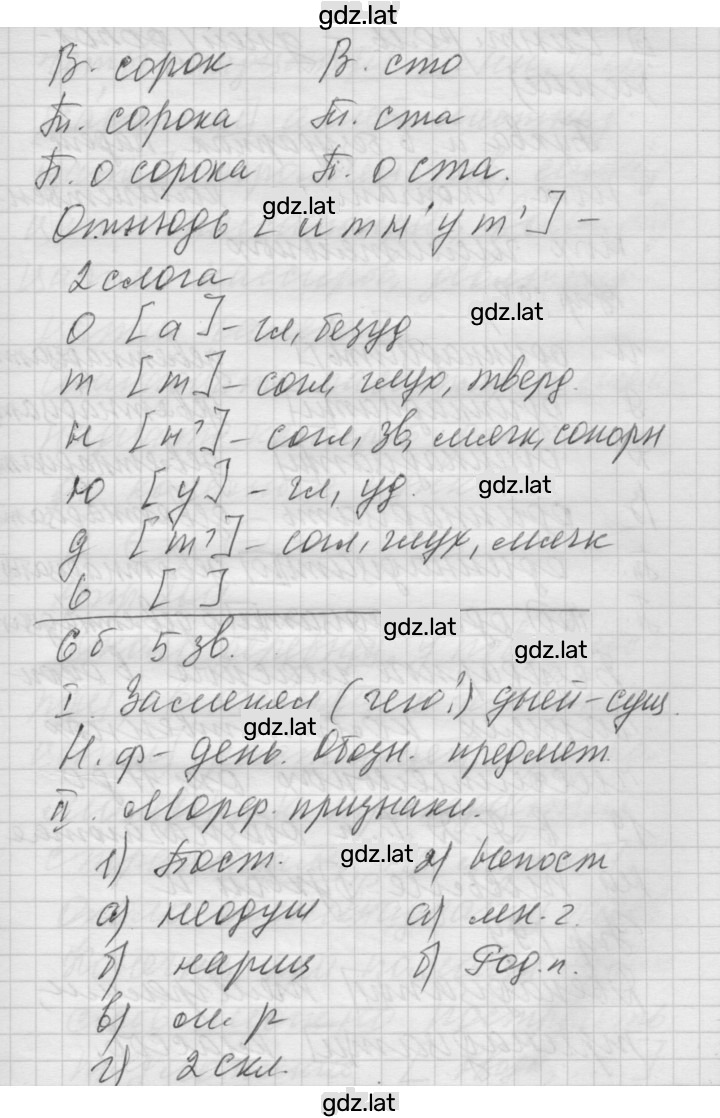 gdz.lat
В. сорок В. сто
Т. сорока Т. ста
П. о сорока П. о ста.
gdz.lat
Отнюдь [а т н' у т'] –
2 слога
gdz.lat
о [а] – гл, безуд
т [т] – согл, глух, тверд.
н [н'] – согл, зв, мягк, сонорн
ю [у] – гл, уд.
gdz.lat
д [т'] – согл, глух, мягк
ь [ ]
gdz.lat
6 б 5 зв.
gdz.lat
I. Заменял (чего?) дней – сущ.
gdz.lat
Н. ф – день. Обозн. предмет
II. Морф. признаки.
gdz.lat
1) Пост. 2) Непост
а) неодуш а) мн. ч.
б) нариц б) Род. п.
в) м. р
г) 2 скл.
gdz.lat